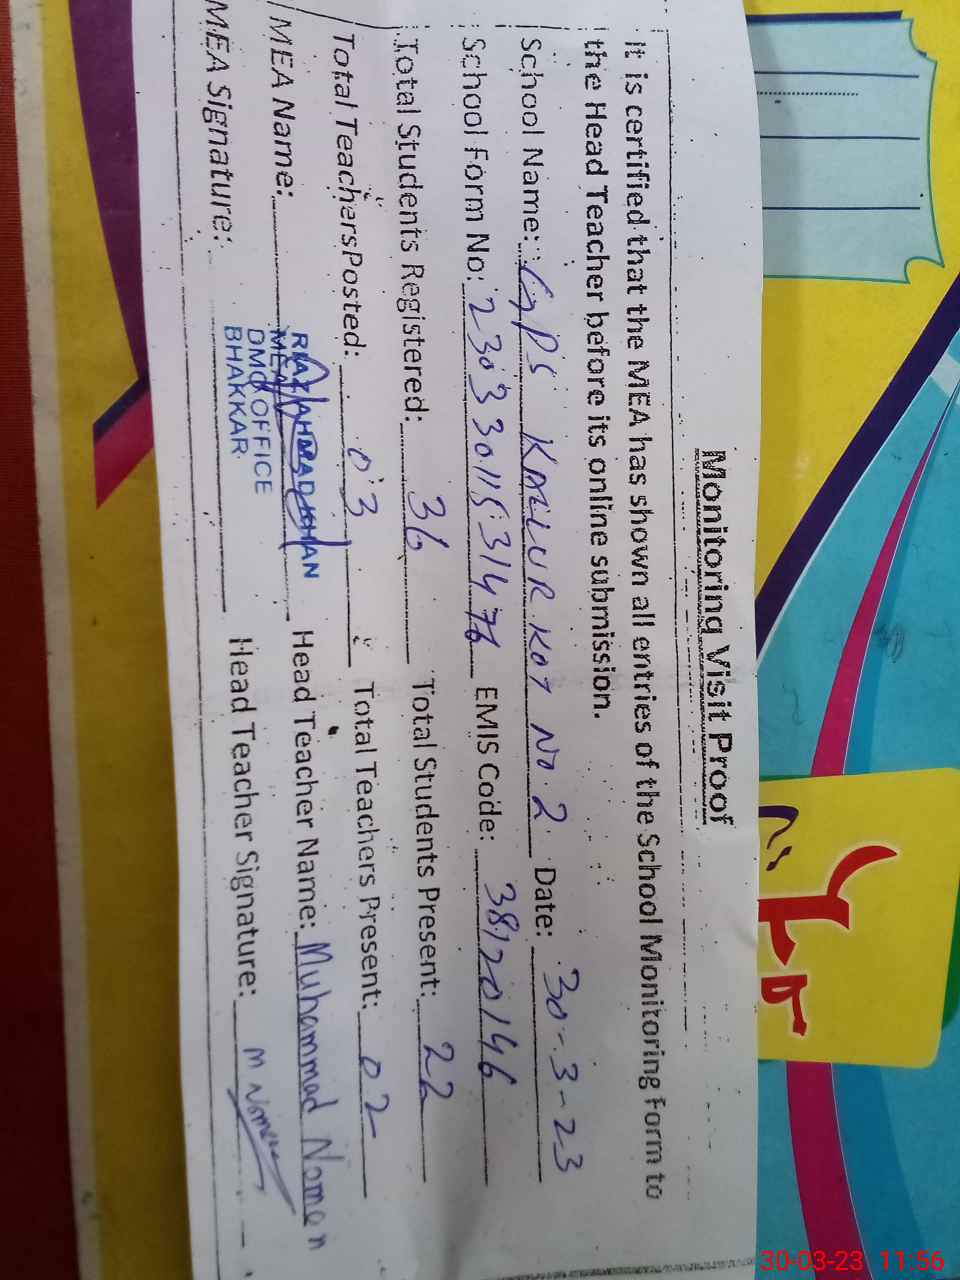 Monitoring Visit Proof
It is certified that the MEA has shown all entries of the School Monitoring Form to
the Head Teacher before its online submission.
School Name: GPS KALLUR KOT No. 2 Date: 30-3-23
School Form No: EMIS Code: 38120146
Total Students Registered: 36 Total Students Present: 22
Total Teachers Posted: 03 Total Teachers Present: 02
MEA Name: RIAZ AHMAD KHAN Head Teacher Name: Muhammad Nomen
MEA
DMO OFFICE
BHAKKAR
MEA Signature: Head Teacher Signature: M Nomen
30-03-23 11:56